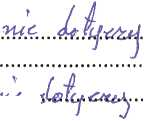 nie dotyczy
nie dotyczy